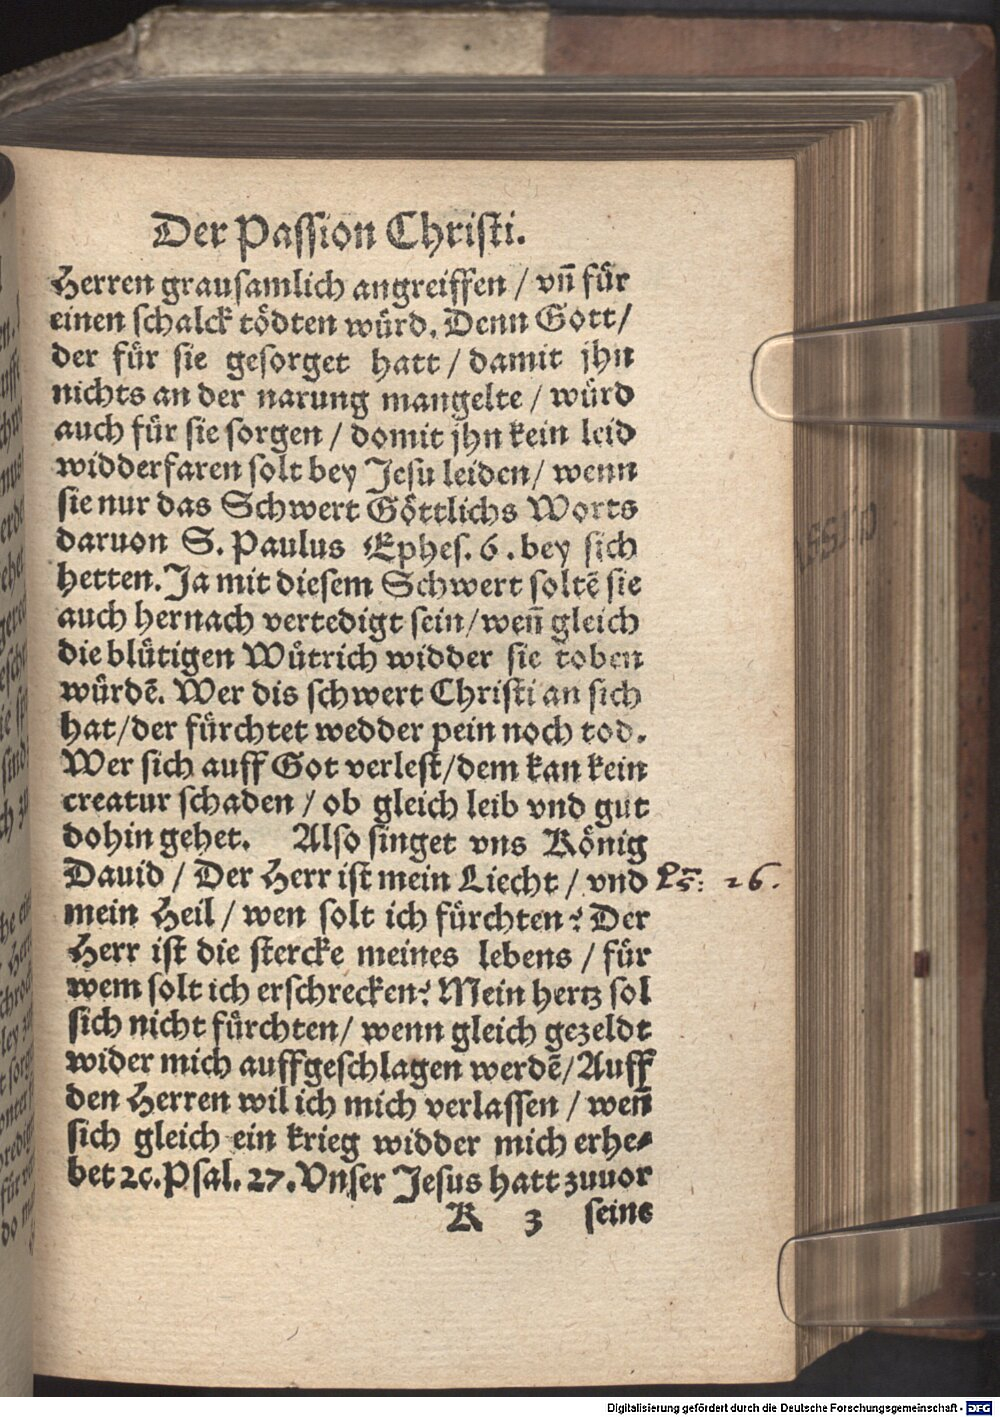 Der Passion Christi.
Herren grausamlich angreiffen / vñ für
einen schalck tödten würd. Denn Gott/
der für sie gesorget hatt / damit jhn
nichts an der narung mangelte / würd
auch für sie sorgen / domit jhn kein leid
widderfaren solt bey Jesu leiden / wenn
sie nur das Schwert Göttlichs Worts
daruon S. Paulus Ephes. 6. bey sich
hetten. Ja mit diesem Schwert soltẽ sie
auch hernach vertedigt sein / weñ gleich
die blütigen Wütrich widder sie toben
würdẽ. Wer dis schwert Christi an sich
hat / der fürchtet wedder pein noch tod.
Wer sich auff Got verlest / dem kan kein
creatur schaden / ob gleich leib vnd gut
dohin gehet. Also singet vns König
Dauid / Der Herr ist mein Liecht / vnd Ps: 26.
mein Heil / wen solt ich fürchten? Der
Herr ist die stercke meines lebens / für
wem solt ich erschrecken? Mein hertz sol
sich nicht fürchten / wenn gleich gezeldt
wider mich auffgeschlagen werdẽ / Auff
den Herren wil ich mich verlassen / weñ
sich gleich ein krieg widder mich erhe⸗
bet ꝛc. Psal. 27. Vnser Jesus hatt zuuor
K 3 seine
Digitalisierung gefördert durch die Deutsche Forschungsgemeinschaft - DFG